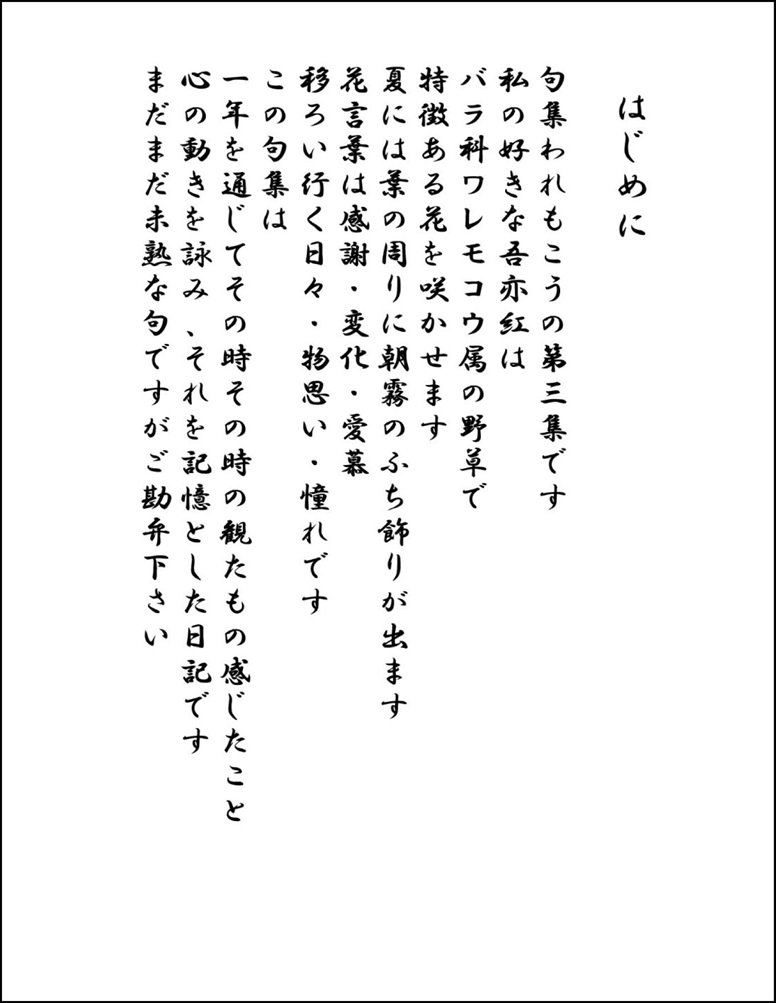 はじめに
句集われもこうの第三集です
私の好きな吾亦紅は
バラ科ワレモコウ属の野草で
特徴ある花を咲かせます
夏には葉の周りに朝霧のふち飾りが出ます
花言葉は感謝・変化・愛慕
移ろい行く日々・物思い・憧れです
この句集は
一年を通じてその時その時の観たもの感じたこと
心の動きを詠み、それを記憶とした日記です
まだまだ未熟な句ですがご勘弁下さい